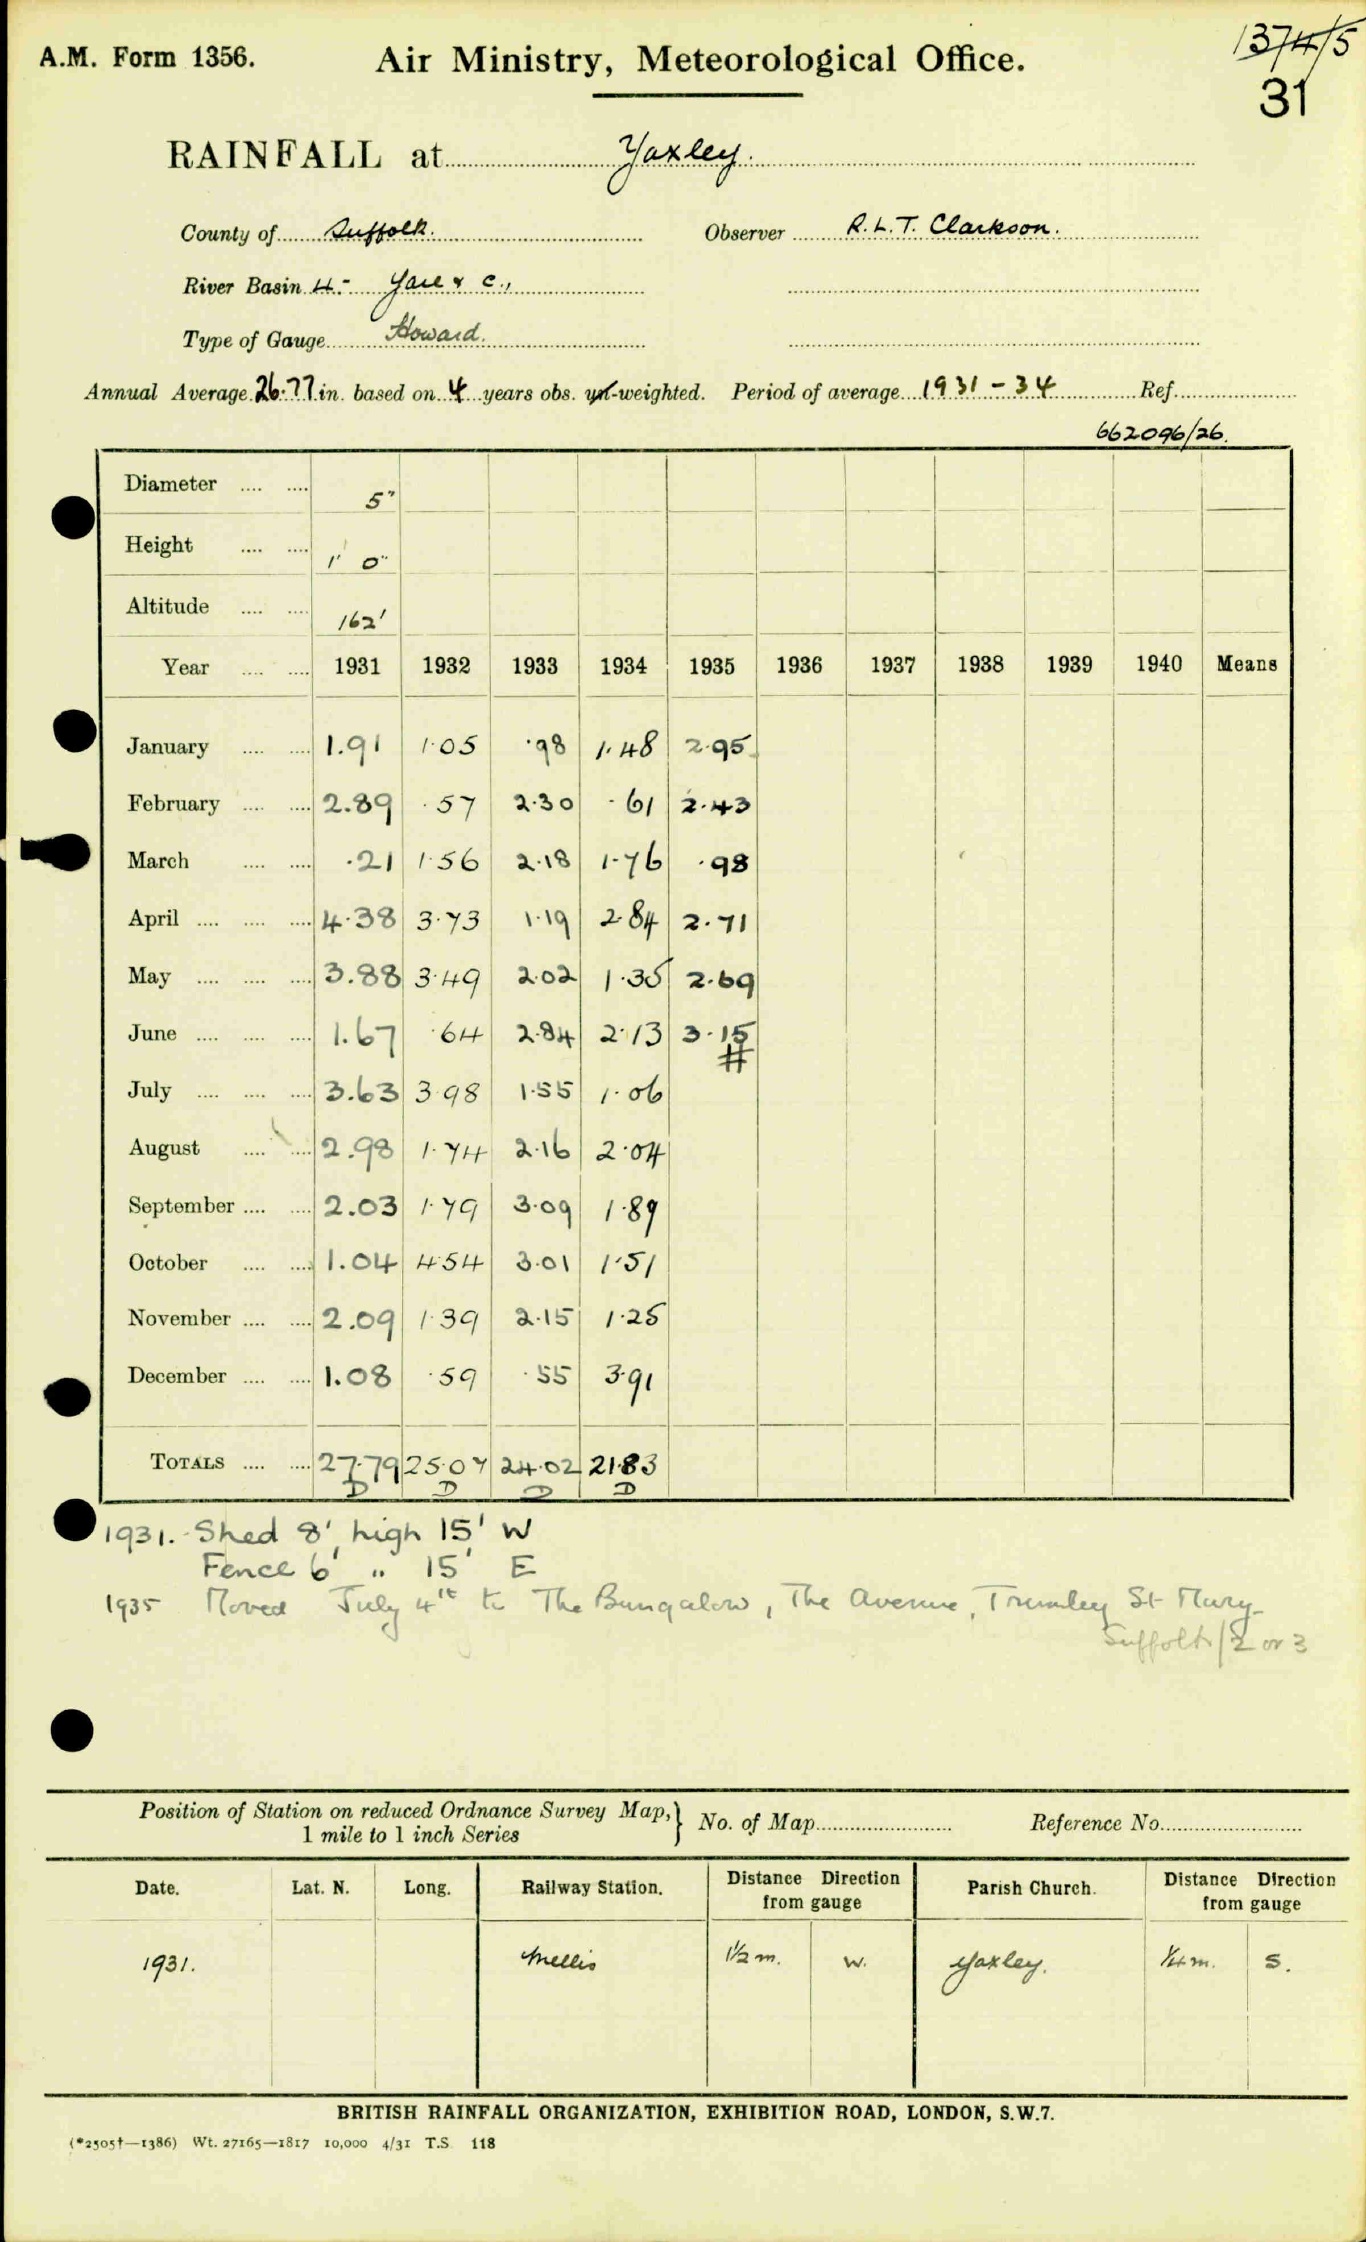 A.M. Form 1356.
Air Ministry, Meteorological Office.
1374/5
31
RAINFALL at Yaxley.
County of Suffolk. Observer R.L.T. Clarkson.
River Basin 4.- Yare & c.,
Type of Gauge Howard.
Annual Average 26.77 in. based on 4 years obs. un-weighted. Period of average 1931-34 Ref.
662096/26.
Diameter .... .... 5"
Height .... .... 1' 0"
Altitude .... .... 162'
Year .... .... 1931 1932 1933 1934 1935 1936 1937 1938 1939 1940 Means
January .... .... 1.91 1.05 .98 1.48 2.95
February .... .... 2.89 .57 2.30 .61 2.43
March .... .... .21 1.56 2.18 1.76 .98
April .... .... .... 4.38 3.73 1.19 2.84 2.71
May .... .... .... 3.88 3.49 2.02 1.35 2.69
June .... .... .... 1.67 .64 2.84 2.13 3.15
#
July .... .... .... 3.63 3.98 1.55 1.06
August .... .... 2.98 1.74 2.16 2.04
September .... .... 2.03 1.79 3.09 1.89
October .... .... 1.04 4.54 3.01 1.51
November .... .... 2.09 1.39 2.15 1.25
December .... .... 1.08 .59 .55 3.91
TOTALS .... .... 27.79 25.07 24.02 21.83
D D D D
1931. Shed 8' high 15' W
Fence 6' " 15' E
1935 Moved July 4th to The Bungalow, The Avenue, Trimley St Mary
Suffolk/2 or 3
Position of Station on reduced Ordnance Survey Map,} No. of Map Reference No.
1 mile to 1 inch Series
Date. Lat. N. Long. Railway Station. Distance Direction from gauge Parish Church. Distance Direction from gauge
1931. Mellis 1½ m. W. Yaxley. ¼ m. S.
BRITISH RAINFALL ORGANIZATION, EXHIBITION ROAD, LONDON, S.W.7.
(*2505†—1386) Wt. 27165—1817 10,000 4/31 T.S. 118